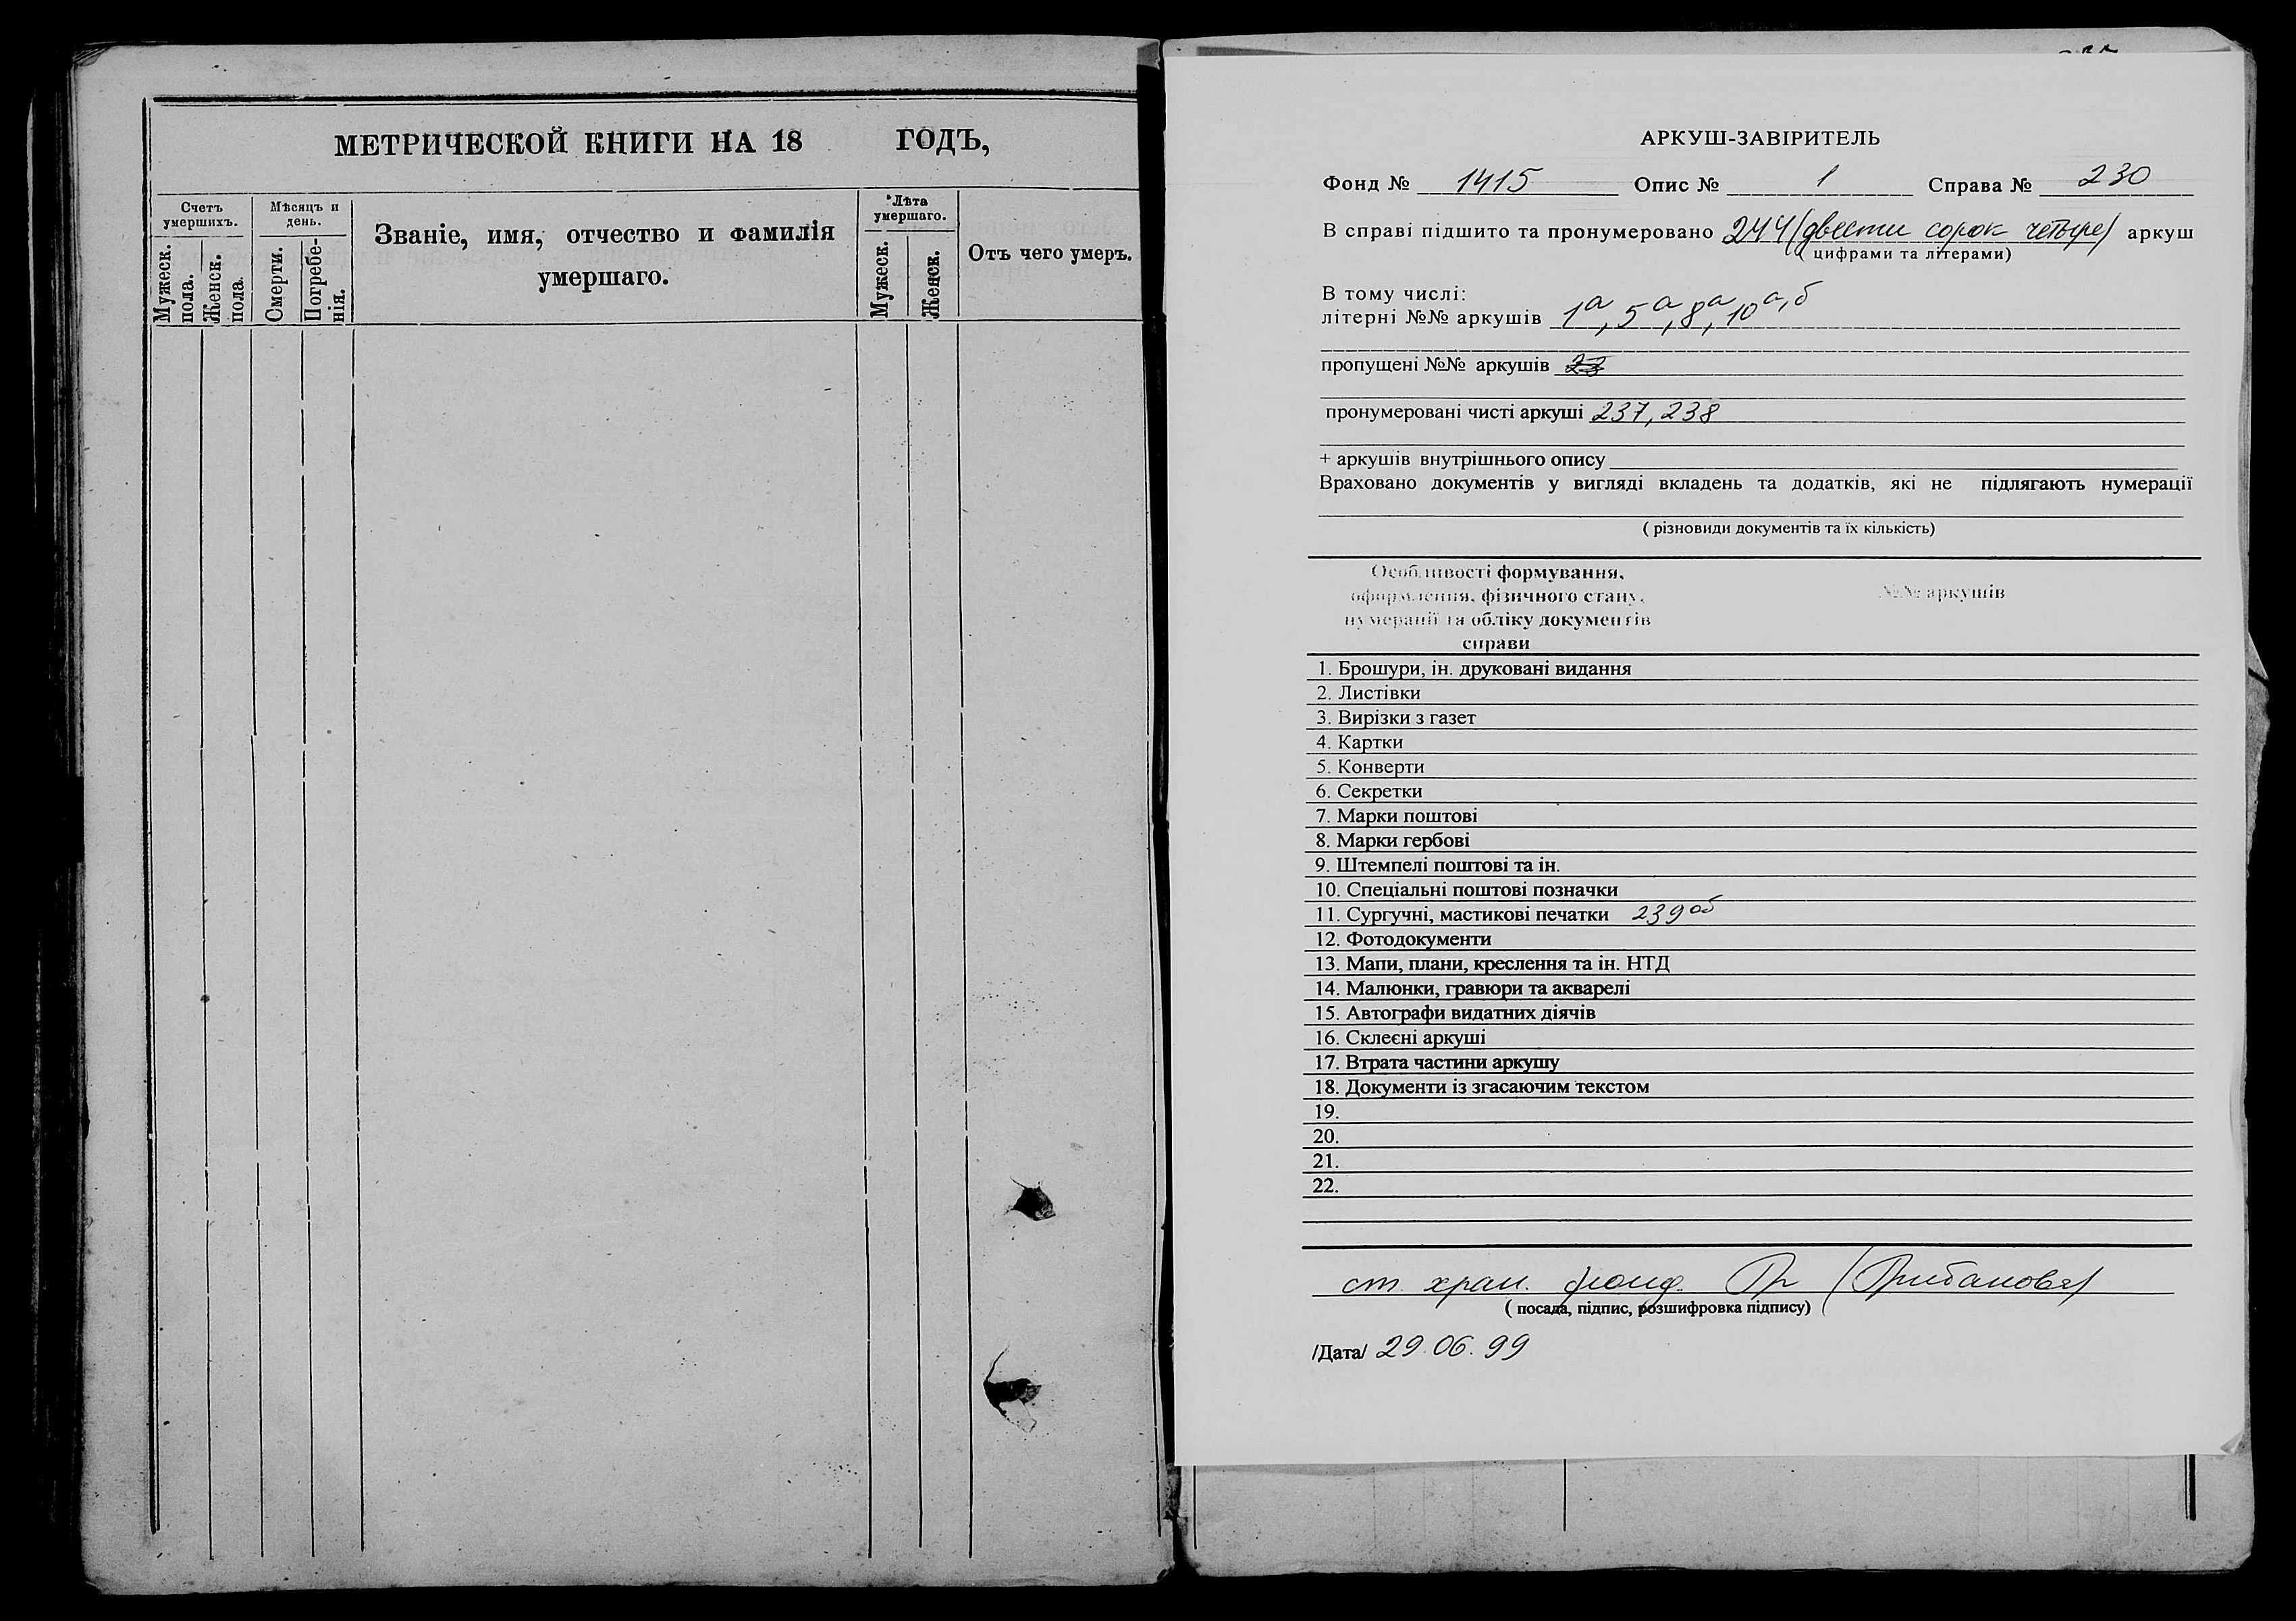 МЕТРИЧЕСКОЙ КНИГИ НА 18 ГОДЪ,
Счетъ умершихъ.
Мужеск. пола.
Женск. пола.
Мѣсяцъ и день.
Смерти.
Погребенія.
Званіе, имя, отчество и фамилія
умершаго.
Лѣта умершаго.
Мужеск.
Женск.
Отъ чего умеръ.
АРКУШ-ЗАВІРИТЕЛЬ
Фонд № 1415 Опис № 1 Справа № 230
В справі підшито та пронумеровано 244 (двести сорок четыре) аркуш
( цифрами та літерами)
В тому числі:
літерні №№ аркушів 1а, 5а, 8а, 10а,б
пропущені №№ аркушів
пронумеровані чисті аркуші 237, 238
+ аркушів внутрішнього опису
Враховано документів у вигляді вкладень та додатків, які не підлягають нумерації
( різновиди документів та їх кількість)
Особливості формування,
оформлення, фізичного стану,
нумерації та обліку документів
справи
№№ аркушів
1. Брошури, ін. друковані видання
2. Листівки
3. Вирізки з газет
4. Картки
5. Конверти
6. Секретки
7. Марки поштові
8. Марки гербові
9. Штемпелі поштові та ін.
10. Спеціальні поштові позначки
11. Сургучні, мастикові печатки 239об
12. Фотодокументи
13. Мапи, плани, креслення та ін. НТД
14. Малюнки, гравюри та акварелі
15. Автографи видатних діячів
16. Склеєні аркуші
17. Втрата частини аркушу
18. Документи із згасаючим текстом
19.
20.
21.
22.
ст. хран. фонд.
( посада, підпис, розшифровка підпису)
/Дата/ 29.06.99